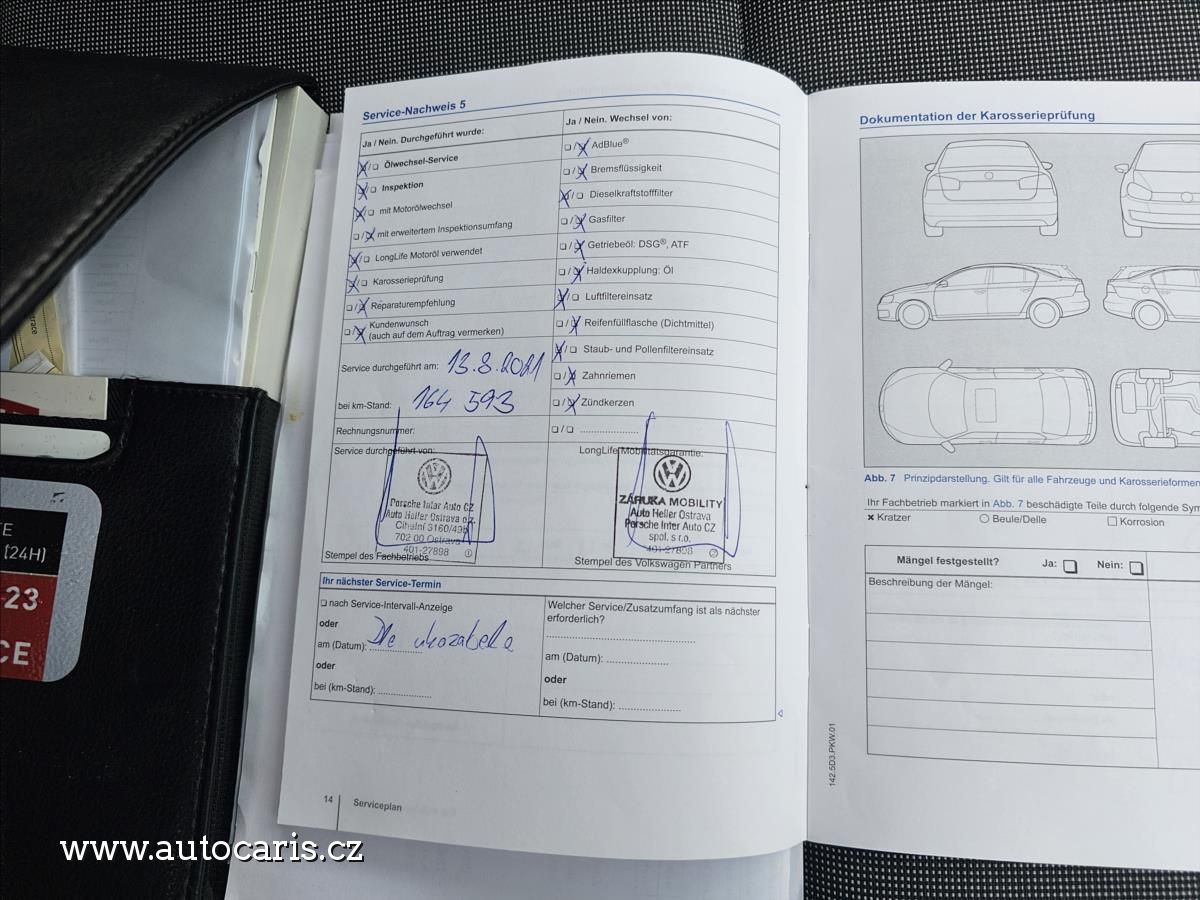 Service-Nachweis 5
Ja / Nein. Durchgeführt wurde:
Ölwechsel-Service
Inspektion
mit Motorölwechsel
mit erweitertem Inspektionsumfang
LongLife Motoröl verwendet
Karosserieprüfung
Reparaturempfehlung
Kundenwunsch
(auch auf dem Auftrag vermerken)
Service durchgeführt am: 13.8.2021
bei km-Stand: 164 593
Rechnungsnummer:
Service durchgeführt von:
Porsche Inter Auto CZ
Auto Heller Ostrava o.z.
Cihelní 3160/49b
702 00 Ostrava
401-27898 1
Stempel des Fachbetriebs
Ja / Nein. Wechsel von:
AdBlue®
Bremsflüssigkeit
Dieselkraftstofffilter
Gasfilter
Getriebeöl: DSG®, ATF
Haldexkupplung: Öl
Luftfiltereinsatz
Reifenfüllflasche (Dichtmittel)
Staub- und Pollenfiltereinsatz
Zahnriemen
Zündkerzen
LongLife Mobilitätsgarantie:
ZÁRUKA MOBILITY
Auto Heller Ostrava
Porsche Inter Auto CZ
spol. s r.o.
401-27898 2
Stempel des Volkswagen Partners
Ihr nächster Service-Termin
nach Service-Intervall-Anzeige
oder
am (Datum): Dle ukazatele
oder
bei (km-Stand):
Welcher Service/Zusatzumfang ist als nächster
erforderlich?
am (Datum):
oder
bei (km-Stand):
14 Serviceplan
Dokumentation der Karosserieprüfung
Abb. 7 Prinzipdarstellung. Gilt für alle Fahrzeuge und Karosserieformen
Ihr Fachbetrieb markiert in Abb. 7 beschädigte Teile durch folgende Sym
Kratzer
Beule/Delle
Korrosion
Mängel festgestellt? Ja: Nein:
Beschreibung der Mängel:
142.5D3.PKW.01
TE
[24H]
-23
CE
www.autocaris.cz